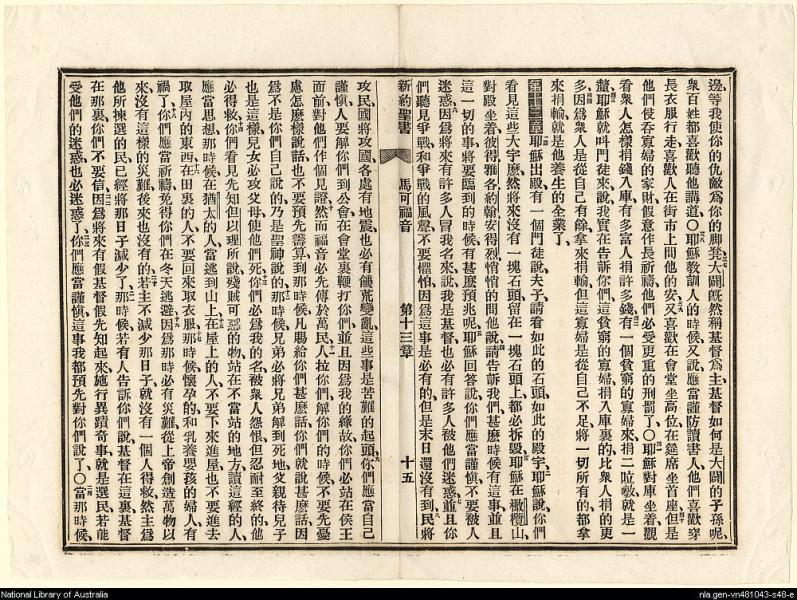 邊、等我使你的仇敵爲你的脚凳、大闢旣然稱基督爲主、基督如何是大闢的子孫呢、
衆百姓都喜歡聽他講道〇耶穌教訓人的時候、又說、應當謹防讀書人、他們喜歡穿
長衣服行走、喜歡人在街市上問他的安、又喜歡在會堂坐高位、在筵席坐首座、但是
他們侵吞寡婦的家財、假意作長祈禱、他們必受更重的刑罰了〇耶穌對庫坐着、觀
看衆人怎樣捐錢入庫、有多富人捐許多錢、有一個貧窮的寡婦來、捐二吡㪇、就是一
釐、耶穌就呌門徒來、說、我實在告訴你們、這貧窮的寡婦捐入庫裏的、比衆人捐的更
多、因爲衆人是從自己有餘、拿來捐輸、但這寡婦是從自己不足、將一切所有的都拿
來捐輸、就是他養生的全業了、
第十三章 耶穌出殿、有一個門徒說、夫子、請看如此的石頭、如此的殿宇、耶穌說、你們
看見這些大宇麽、然將來沒有一塊石頭留在一塊石頭上、都必拆毀、耶穌在橄欖山、
對殿坐着、彼得雅各約翰安得烈悄悄的問他說、請告訴我們、甚麽時候有這事、並且
這一切的事將要臨到的時候、有甚麽預兆呢、耶穌回答說、你們應當謹愼、不要被人
迷惑、因爲將來有許多人冒我名來、說我是基督、也必有許多人被他們迷惑、並且你
們聽見爭戰和爭戰的風聲、不要懼怕、因爲這事是必有的、但是末日還沒有到、民將
新約聖書 馬可福音 第十三章 十五
攻民、國將攻國、各處有地震、也必有饑荒變亂、這些事是苦難的起頭、你們應當自己
謹愼、人要解你們到公會、在會堂裏鞭打你們、並且因爲我的緣故、你們必站在侯王
面前、對他們作個見證、然而福音必先傳於萬民、人拉你們解你們的時候、不要先憂
慮怎麽樣說話、也不要預先籌算、到那時候、凡賜給你們甚麽話、你們就說甚麽話、因
爲不是你們自己說的、乃是聖神說的、那時候、兄弟必將兄弟解到死地、父親待兒子
也是這樣、兒女必攻父母、使他們死、你們必爲我的名、被衆人怨恨、但忍耐至終的、他
必得救、你們看見先知但以理所說、殘賊可惡的物、站在不當站的地方、讀這經的人、
應當思想、那時候、在猶太的人、當逃到山上、在屋上的人、不要下來進屋、也不要進去
取屋內的東西、在田裏的人、不要回來取衣服、那時候、懷孕的和乳養嬰孩的婦人有
禍了、你們應當祈禱、免得你們在冬天逃避、因那時必有災難、從上帝創造萬物以
來、沒有這樣的災難、後來也沒有的、若主不減少那日子、就沒有一個人得救、然主爲
他所揀選的民、已經將那日子減少了、那時候、若有人告訴你們說、基督在這裏、基督
在那裏、你們不要信、因爲將來有假基督假先知起來、施行異蹟奇事、就是選民、若能
受他們的迷惑、也必迷惑了、你們應當謹愼、這事我都預先對你們說了〇當那時候、
National Library of Australia
nla.gen-vn481043-s48-e